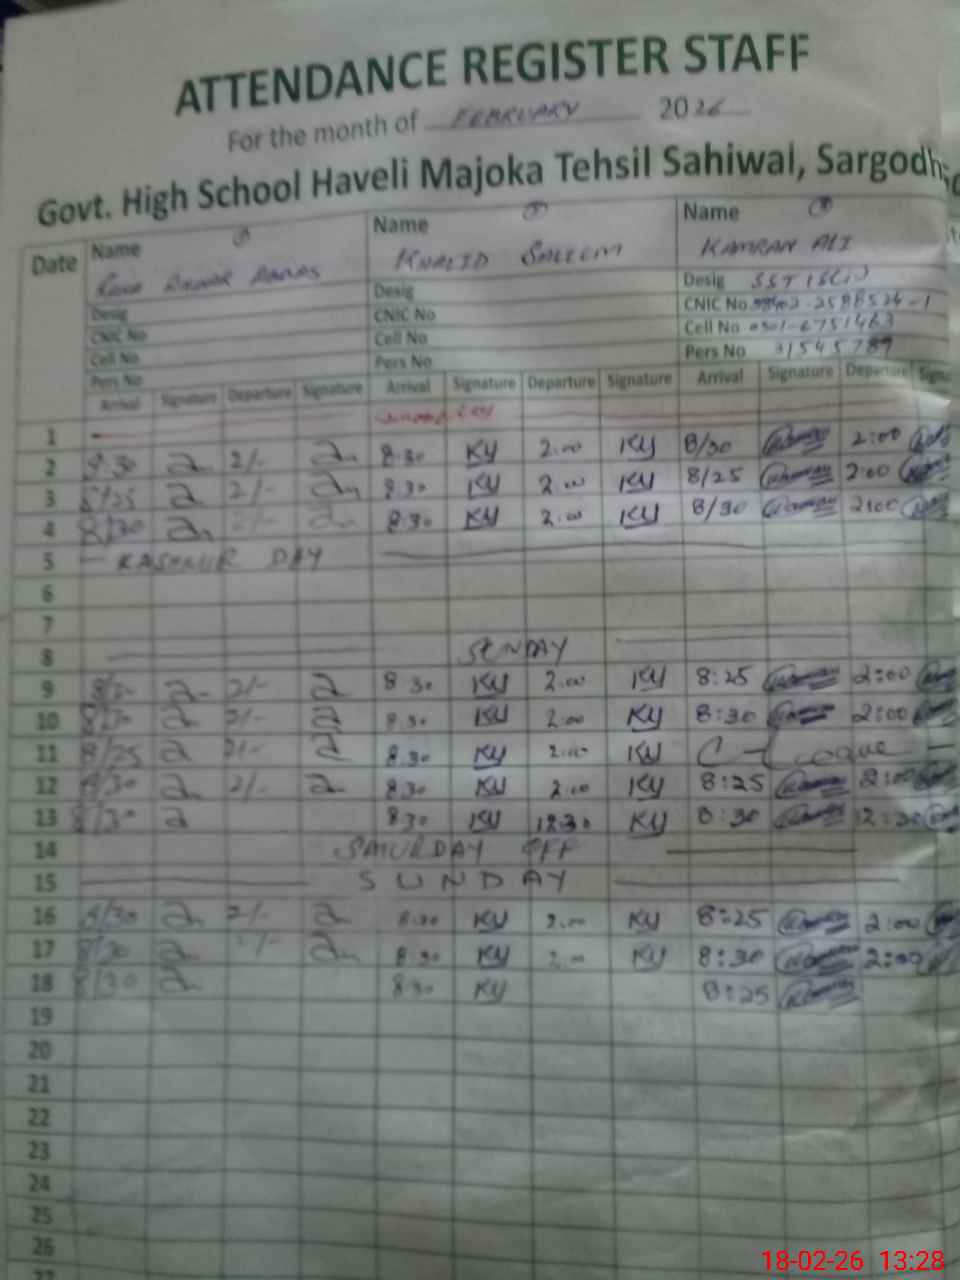 ATTENDANCE REGISTER STAFF
For the month of FEBRUARY 2026
Govt. High School Haveli Majoka Tehsil Sahiwal, Sargodh
Date Name Name Name
KHALID SALEEM KAMRAN ALI
Desig Desig Desig SST (SCI)
CNIC No CNIC No CNIC No
Cell No Cell No Cell No 0301-6751463
Pers No Pers No Pers No 31545789
Arrival Signature Departure Signature Arrival Signature Departure Signature Arrival Signature Departure
1
2 8.30 2/- 8.30 KY 2.00 KY 8/30 2:00
3 8/25 2/- 8.30 KY 2.00 KY 8/25 2:00
4 8/30 2/- 8.30 KY 2.00 KY 8/30 2:00
5 KASHMIR DAY
6
7
8 SUNDAY
9 2/- 8.30 KY 2.00 KY 8:25 2:00
10 2/- 8.30 KY 2.00 KY 8:30 2:00
11 8/25 2/- 8.30 KY 2.00 KY C-Leaque
12 8/30 2/- 8.30 KY 2.00 KY 8:25 2:00
13 8/30 8.30 KY 12.30 KY 8:30 12:30
14 SATURDAY OFF
15 SUNDAY
16 8/30 2/- 8.30 KY 2.00 KY 8:25 2:00
17 8/30 2/- 8.30 KY 2.00 KY 8:30 2:00
18 8/30 8.30 KY 8:25
19
20
21
22
23
24
25
26
18-02-26 13:28